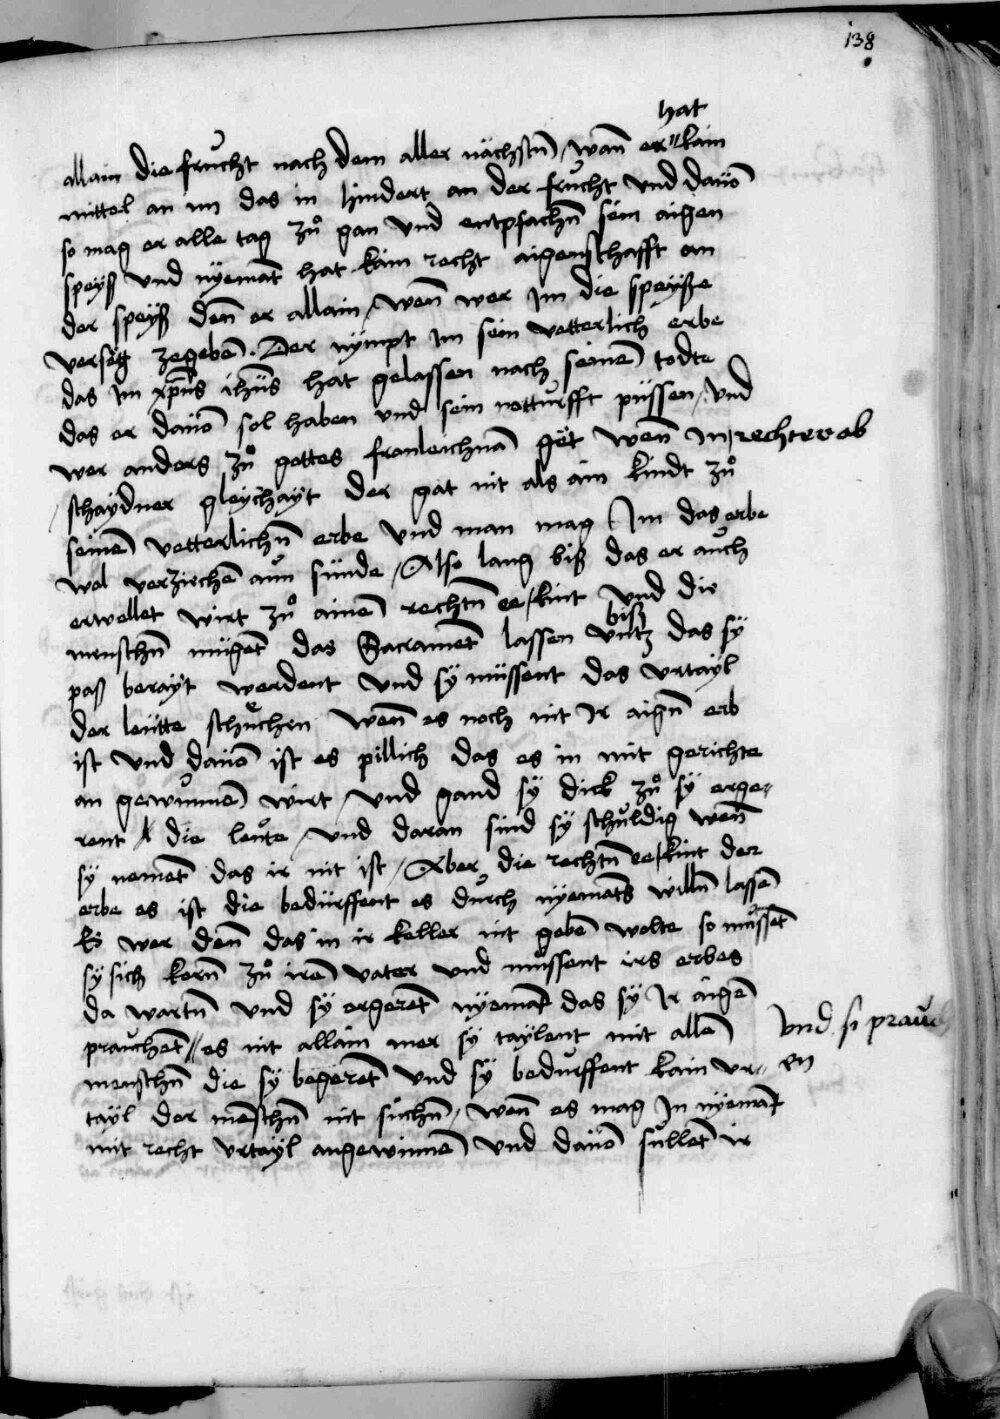 138
hat
allain die frucht nach dem aller nächstn̄ / wan̄ er kain
mittel an im das in hindert an der frucht vnd dauō
so mag er alle tag zuͦ gan vnd entpfachn̄ sein aigen
speyß vnd nyemāt hat kain recht aigenschafft an
der speyß den̄ er allain / wen̄ wer Im die speyße
verseÿ zegebē . Der nympt Im sein vetterlich erbe
das Im xp̄us ihūs hat gelassen nach seinē todte
das er dauō sol haben vnd sein notturfft püssen / vnd
wer anders zuͦ gottes fronleichnā gët wen̄ In rechter ab
schaydner gleychayt der gat nit als ain kindt zuͦ
seinē vetterlichn̄ erbe vnd man mag Im das erbe
wol verziechē aun sünde / Also lang biß das er auch
erwellet wirt zuͦ ainē rechtn̄ ee kint vnd die
biß
menschn̄ mügēt das Sacramēt lassen vntz das sÿ
paß berayt werdent vnd sÿ müssent das vrtayl
der leütte schuchen wen̄ es noch nit Ir aign̄ erb
ist vnd dauō ist es pillich das es in mit gerichte
an gewunnē wirt / vnd gand sÿ dick zuͦ sÿ erge〃
rent die leute / vnd daran sind sÿ schuldig wen̄
sÿ nemēt das ir nit ist / Aber die rechtn̄ ee kint der
erbe es ist die bedürffent es durch nyemāts willn̄ lassē
Es wer den̄ das in ir keller nit gebē wolte so müssēt
sÿ sich kern̄ zuͦ irē vater vnd müssent irs erbes
da wartn̄ vnd sÿ ergerēt nyemāt das sÿ Ir aigē
prauchēt // es nit allain mer sÿ taylent mit allē
vnd si prauch
en
menschn̄ die sÿ begerēt vnd sÿ bedurffent kain vr〃
tayl der mēschn̄ nit süchn̄ / wen̄ es mag In nyemāt
mit recht vrtayl angewinnē vnd dauō süllēt ir